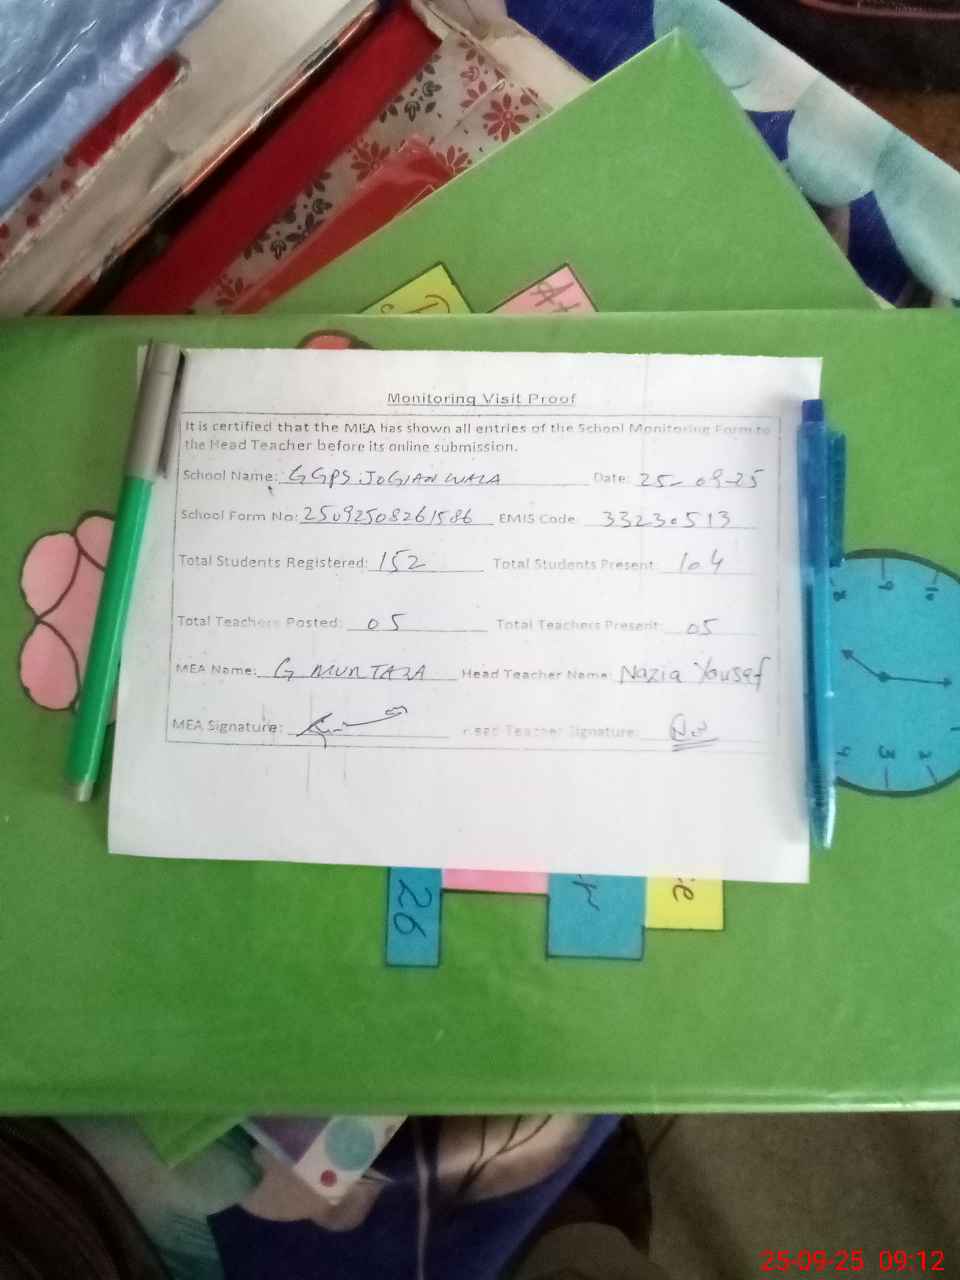 Monitoring Visit Proof
It is certified that the MEA has shown all entries of the School Monitoring Form to
the Head Teacher before its online submission.
School Name: GGPS JOGIAN WALA Date: 25-09-25
School Form No: 25092508261586 EMIS Code 33230513
Total Students Registered: 152 Total Students Present: 104
Total Teachers Posted: 05 Total Teachers Present: 05
MEA Name: G MURTAZA Head Teacher Name: Nazia Yousef
MEA Signature: Head Teacher Signature:
26
25-09-25 09:12